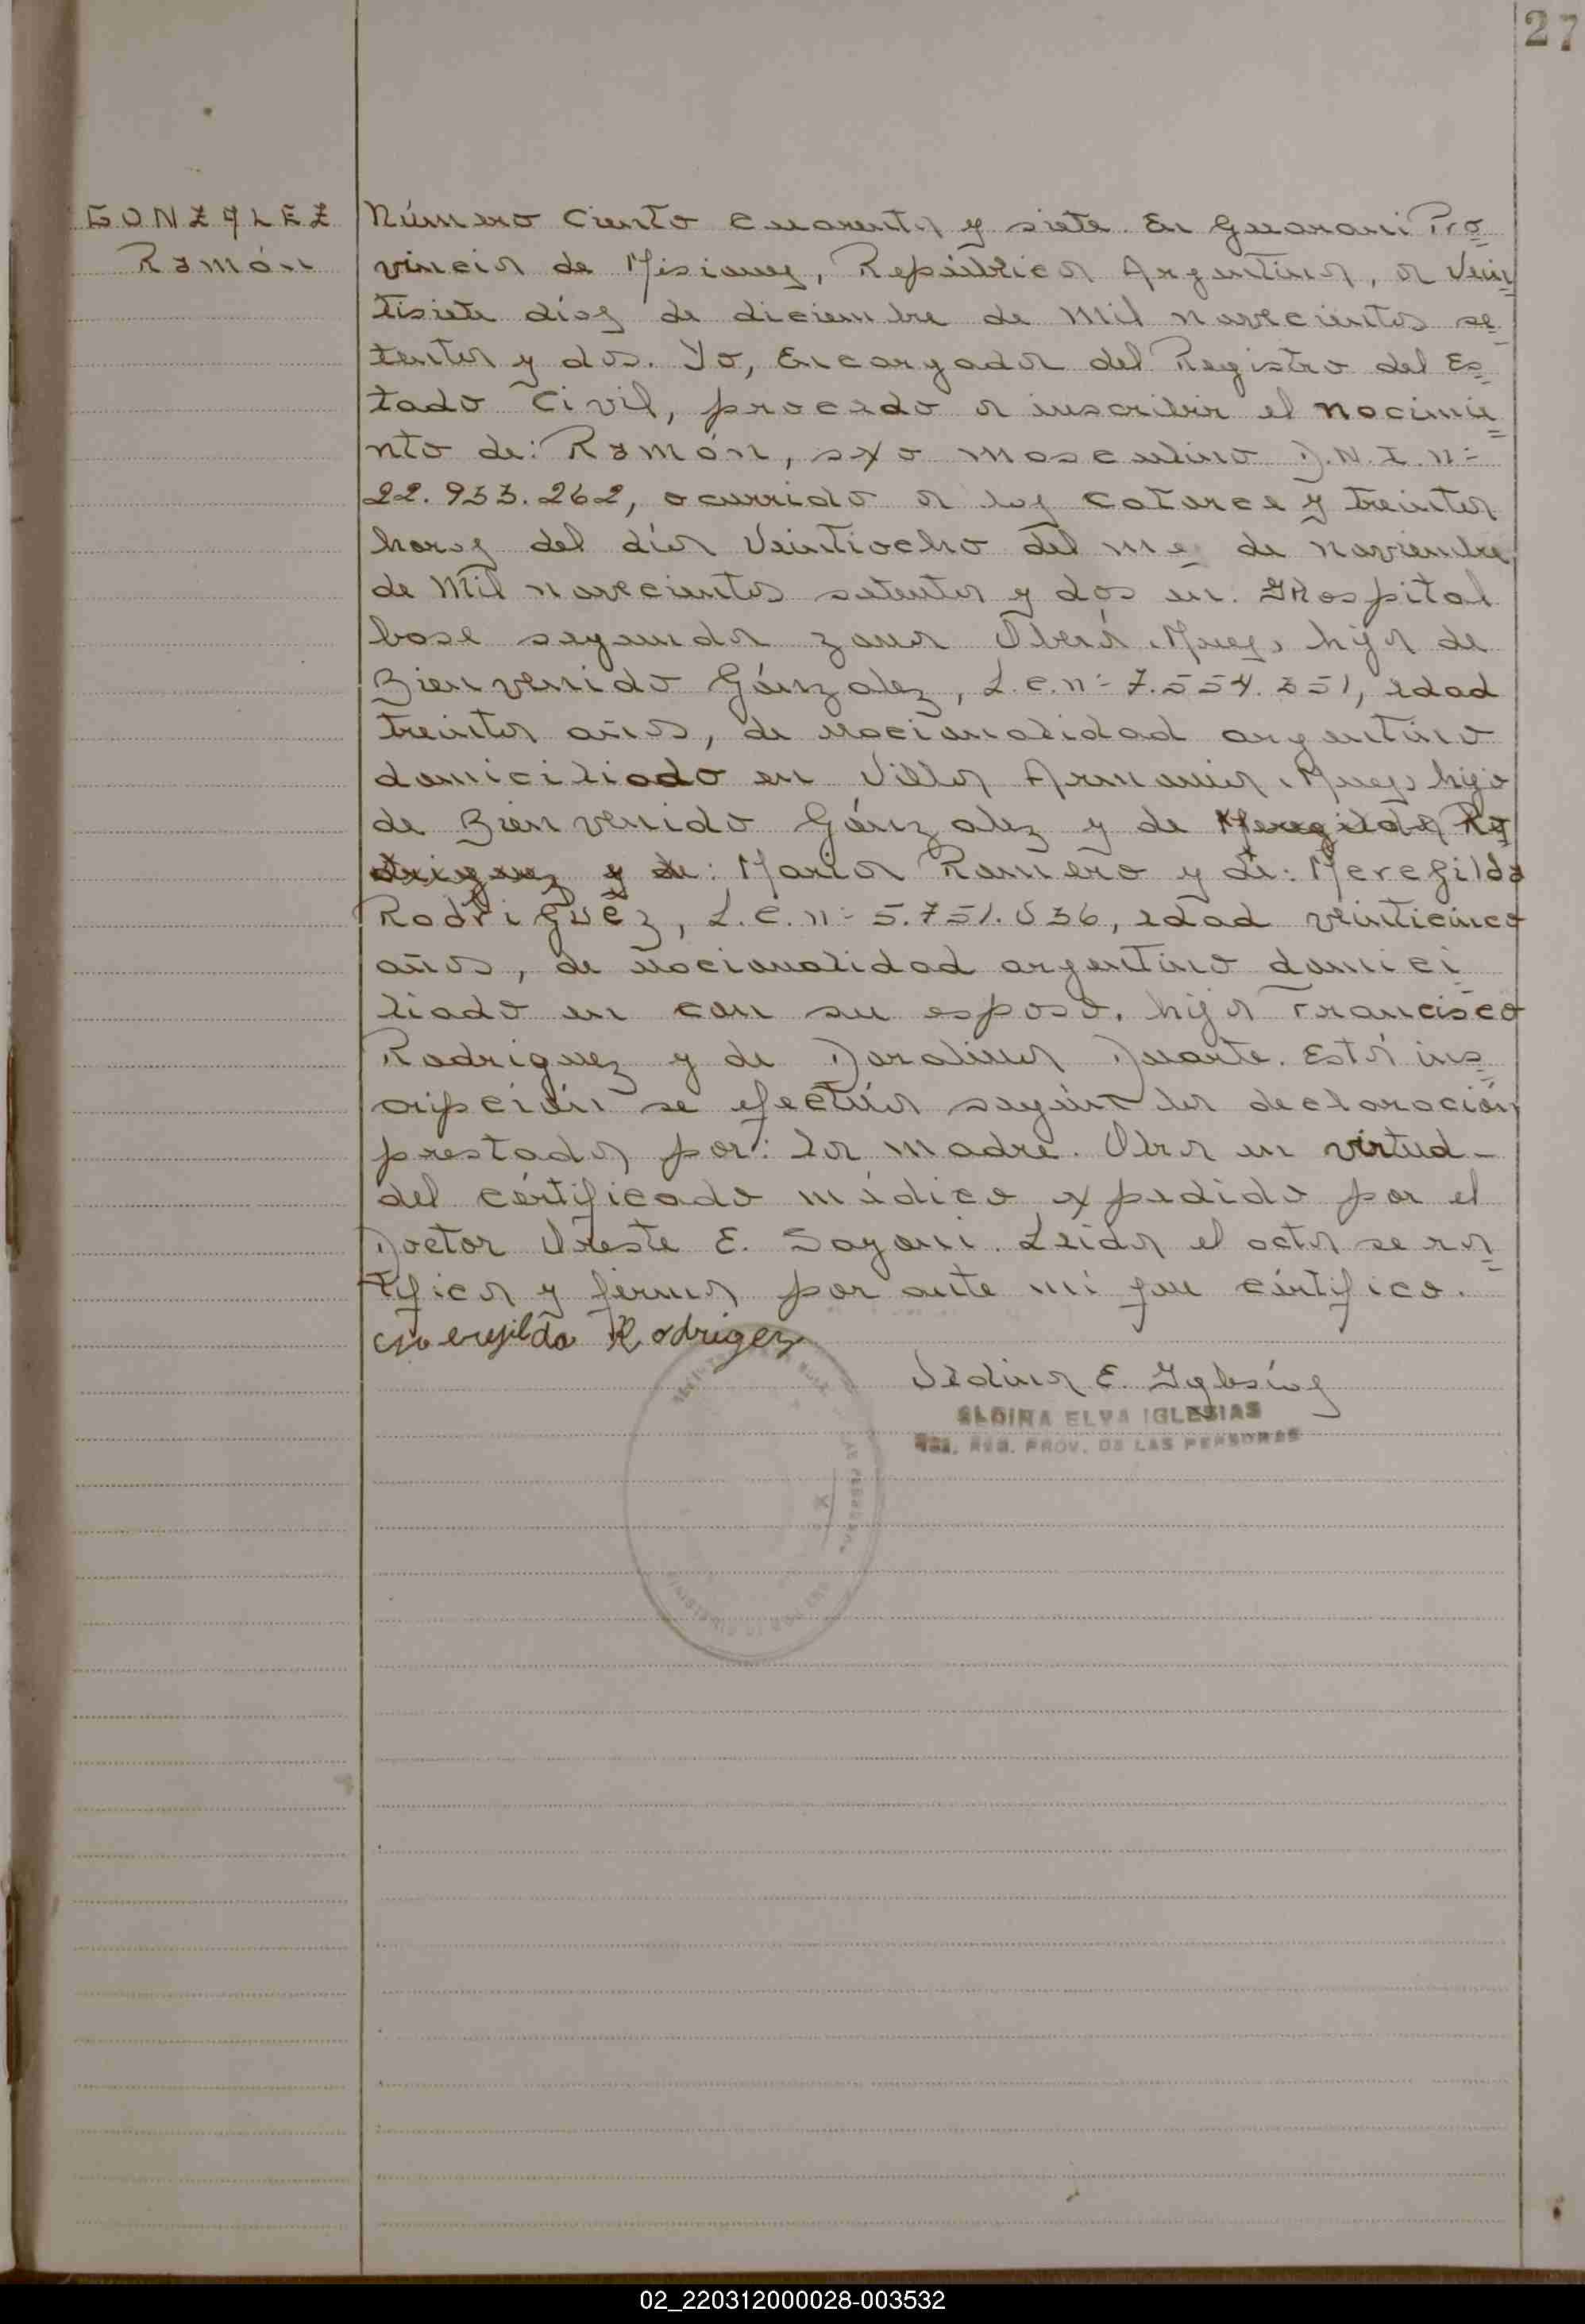 27
GONZALEZ
Ramón
Número Ciento cuarenta y siete. En Guarani Pro
vincia de Misiones, República Argentina, a vein
tisiete días de diciembre de Mil novecientos se
tenta y dos. Yo, Encargada del Registro del Es
tado Civil, procedo a inscribir el nacimie
nto de: Ramón, sexo masculino D.N.I. nº
22.933.262, ocurrido a las catorce y treinta
horas del día Veintiocho del mes de noviembre
de Mil novecientos setenta y dos en: Hospital
base segunda zona Oberá. Mnes, hijo de
Bienvenido Gónzalez, L.E. nº 7.554.351, edad
treinta años, de nacionalidad argentino
domiciliado en Villa Armonia, Mnes, hijo
de Bienvenido Gónzalez y de Meregilda Ro
driguez y de: Maria Romero y de: Meregilda
Rodriguez, L.C. nº 5.751.036, edad veinticinco
años, de nacionalidad argentino domici
liado en con su esposo, hija Francisco
Rodriguez y de Doralina Duarte. Está ins
cripción se efectúa según la declaración
prestada por: la madre. Obra en virtud
del certificado médico expedido por el
Doctor Oreste E. Leida el acta se ra
tifica y firma por ante mi que certifico.
Meregilda Rodrigez
E. Iglesias
ELVA IGLESIAS
REG. PROV. DE LAS PERSONAS
02_220312000028-003532